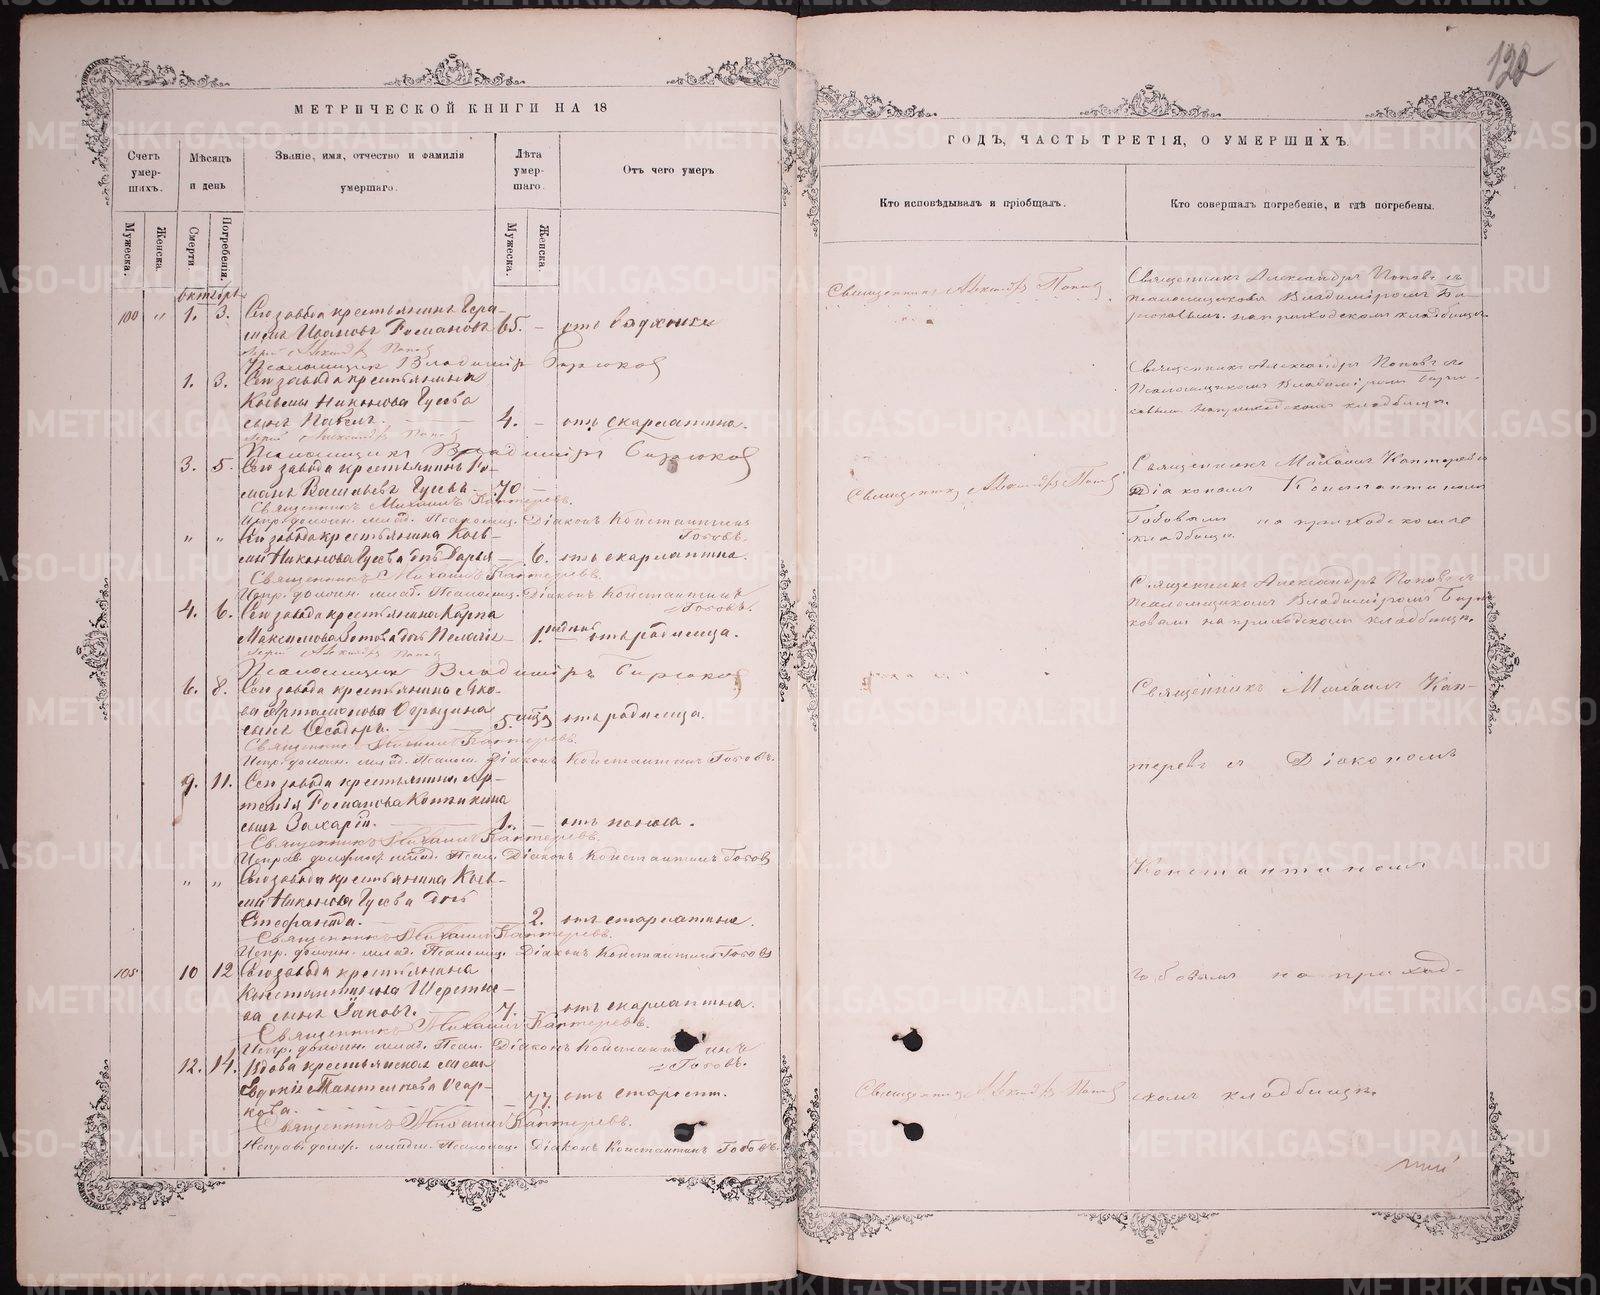 122
МЕТРИЧЕСКОЙ КНИГИ НА 18
Счетъ умер- шихъ.
Мѣсяцъ и день
Званіе, имя, отчество и фамилія умершаго.
Лѣта умер- шаго.
Отъ чего умеръ
Мужеска.
Женска.
Смерти.
Погребенія.
Мужеска.
Женска.
Октябрь
100 " 1. 3. Сего завода крестьянинъ Гера-
симъ Ивановъ Романовъ 65. – отъ
Іерей Александръ Поповъ
Псаломщикъ Владиміръ Бирюковъ
1. 3. Сего завода крестьянина
Косьмы Никонова Гусева
сынъ Павелъ. 4. – отъ скарлатина.
Іерей Александръ Поповъ
Псаломщикъ Владиміръ Бирюковъ
3. 5. Сего завода крестьянинъ Ро-
манъ Васильевъ Гусевъ – 70 –
Священникъ Михаилъ Каптеревъ.
Испр. должн. млад. Псаломщ. Діаконъ Константинъ
Гобовъ.
" " Сего завода крестьянина Кось-
мы Никонова Гусева дочь Дарья – 6. отъ скарлатина.
Священникъ Михаилъ Каптеревъ.
Испр. должн. млад. Псаломщ. Діаконъ Константинъ
Гобовъ.
4. 6. Сего завода крестьянина Карпа
Максимова дочь Пелагія – 1. отъ родимца.
Іерей Александръ Поповъ
Псаломщикъ Владиміръ Бирюковъ
6. 8. Сего завода крестьянина Яко-
ва Артамонова
сынъ Ѳеодоръ. 5. мѣсц. отъ родимца.
Священникъ Михаилъ Каптеревъ.
Испр. должн. млад. Псалом. Діаконъ Константинъ Гобовъ.
9. 11. Сего завода крестьянина Ар-
темія Романова
сынъ Захарій. 1. – отъ поноса.
Священникъ Михаилъ Каптеревъ.
Исправ. должност. млад. Псал. Діаконъ Константинъ Гобовъ
" " Сего завода крестьянина Кось-
мы Никонова Гусева дочь
Стефанида. 2. отъ скарлатина.
Священникъ Михаилъ Каптеревъ.
Испр. должн. млад. Псаломщ. Діаконъ Константинъ Гобовъ
105 10 12 Сего завода крестьянина
Константинова
ва сынъ Іаковъ. – 7. – отъ скарлатина.
Священникъ Михаилъ Каптеревъ.
Испр. должн. млад. Псал. Діаконъ Константинъ
Гобовъ.
12. 14. Вдова крестьянская жена
Евдокія Пантелиева
кова. 77. отъ старост.
Священникъ Михаилъ Каптеревъ.
Исправ. долж. младш. Псаломщ. Діаконъ Константинъ Гобовъ.
ГОДЪ, ЧАСТЬ ТРЕТІЯ, О УМЕРШИХЪ.
Кто исповѣдывалъ и пріобщалъ.
Кто совершалъ погребеніе, и гдѣ погребены.
Священникъ Александръ Поповъ
Священникъ Александръ Поповъ съ
Псаломщикомъ Владиміромъ Би-
рюковымъ. на приходскомъ кладбищѣ.
Священникъ Александръ Поповъ съ
Псаломщикомъ Владиміромъ Бирю-
ковымъ на приходскомъ кладбищѣ.
Священникъ Александръ Поповъ
Священникъ Михаилъ Каптеревъ
Діакономъ Константиномъ
Гобовымъ на приходскомъ
кладбищѣ.
Священникъ Александръ Поповъ съ
Псаломщикомъ Владиміромъ Бирю-
ковымъ на приходскомъ кладбищѣ.
Священникъ Михаилъ Кап-
теревъ съ Діакономъ
Константиномъ
Гобовымъ на приход-
скомъ кладбищѣ.
Священникъ Александръ Поповъ
METRIKI.GASO-URAL.RU